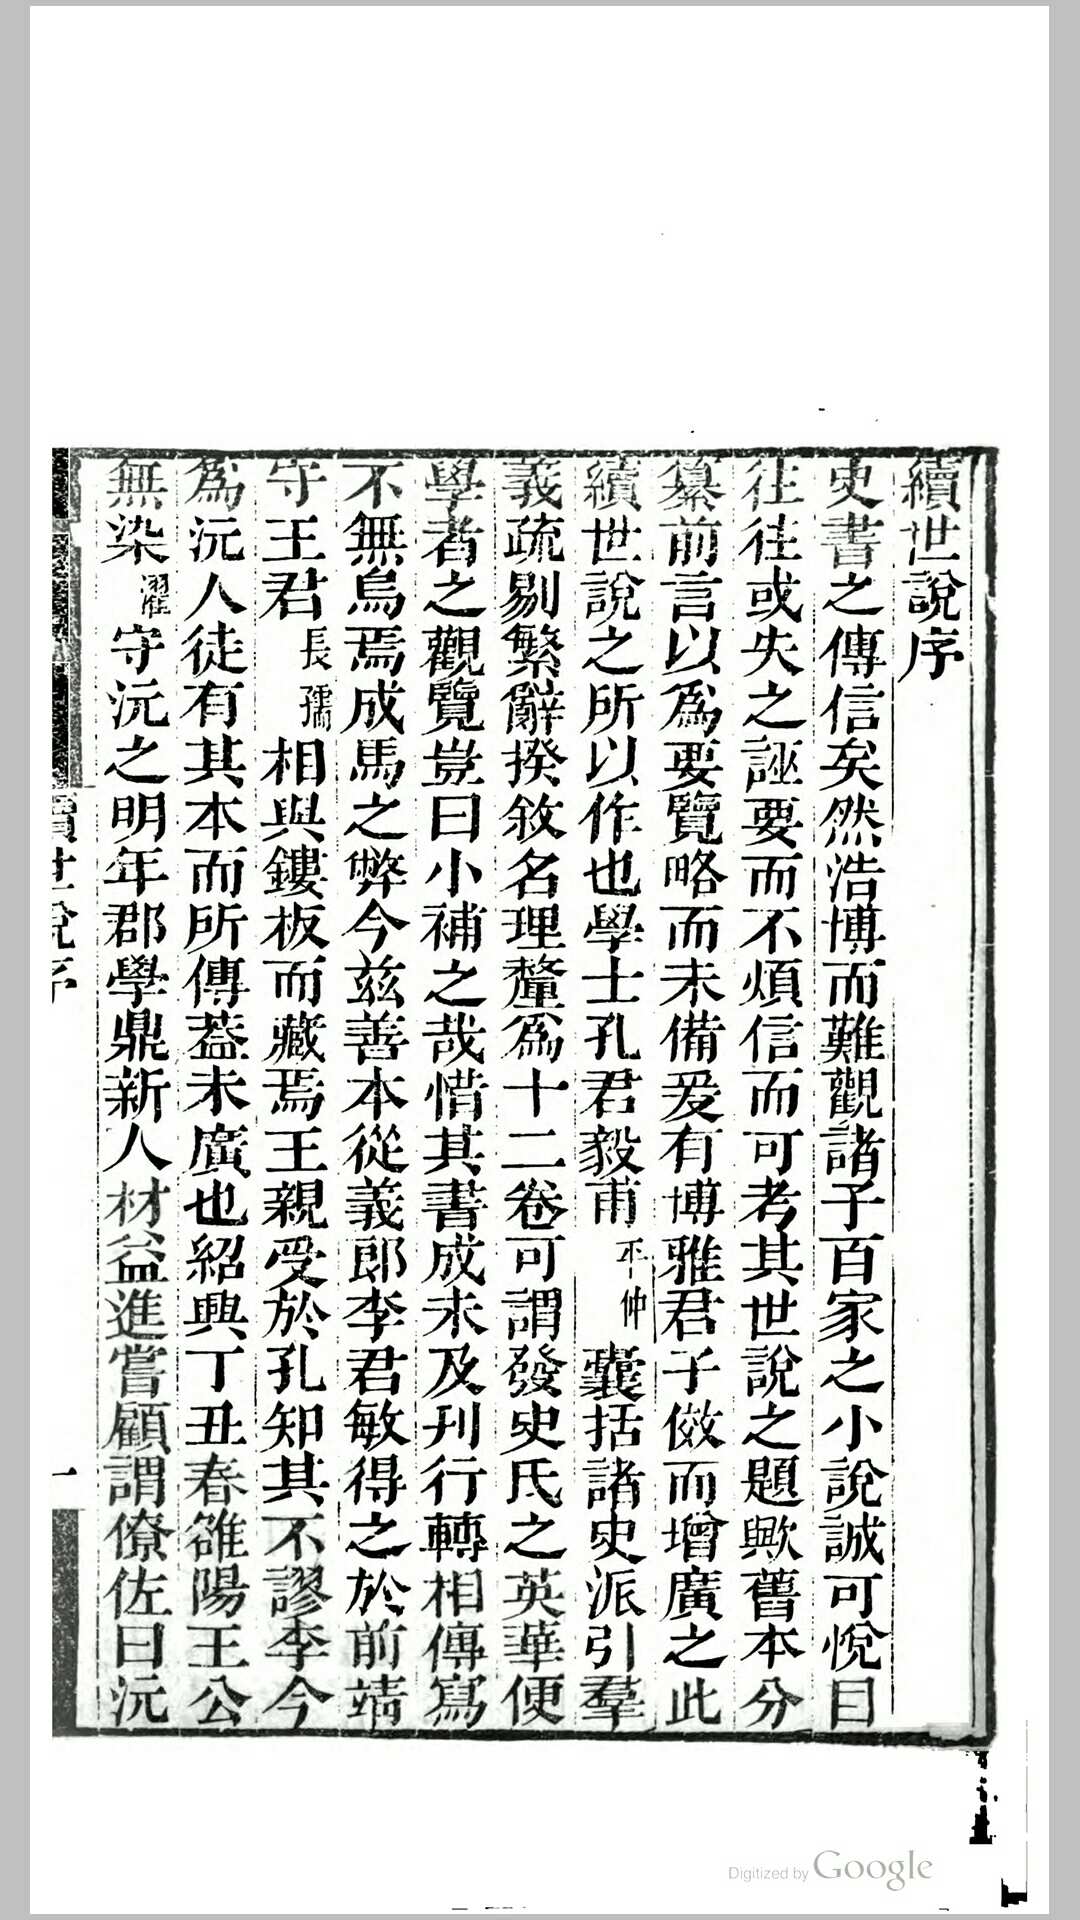 續世說序
史書之傳信矣然浩博而難觀諸子百家之小說誠可悅目
往往或失之誣要而不煩信而可考其世說之題歟舊本分
纂前言以爲要覽略而未備爰有博雅君子倣而增廣之此
續世說之所以作也學士孔君毅甫平仲囊括諸史派引羣
義疏剔繁辭揆敘名理釐爲十二卷可謂發史氏之英華便
學者之觀覽豈曰小補之哉惜其書成未及刊行轉相傳寫
不無烏焉成馬之弊今兹善本從義郎李君敏得之於前靖
守王君長孺相與鏤板而藏焉王親受於孔知其不謬李今
爲沅人徒有其本而所傳葢未廣也紹興丁丑春雒陽王公
無染濯守沅之明年郡學鼎新人材益進嘗顧謂僚佐曰沅
續世說序
一
Digitized by Google